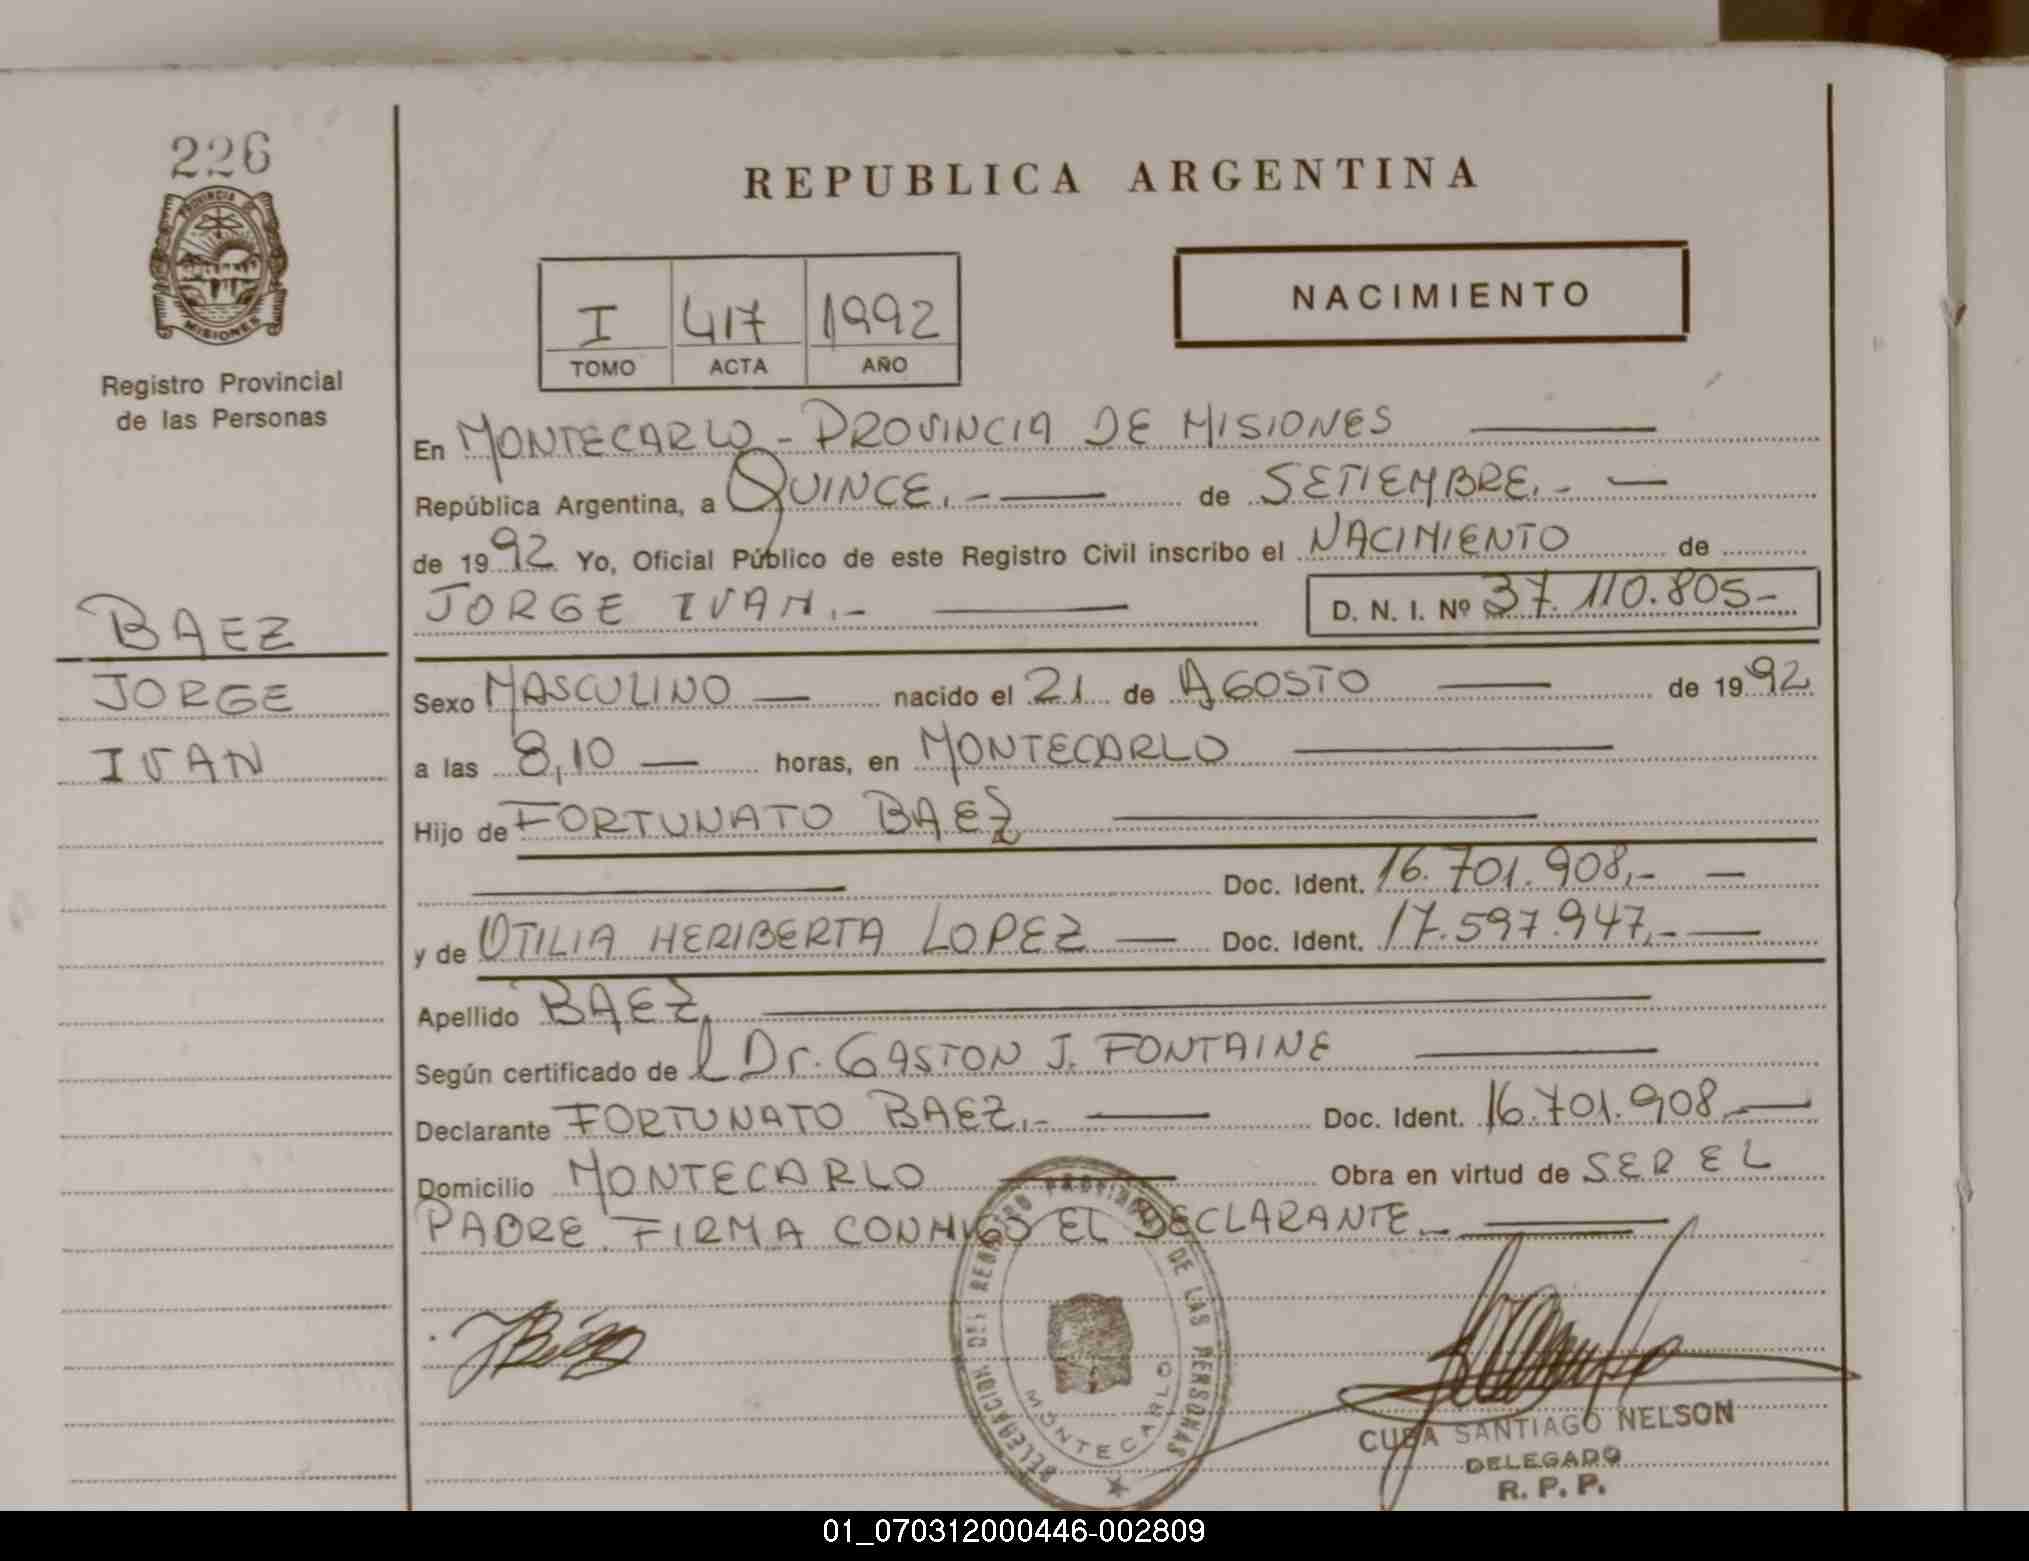 226
PROVINCIA DE
MISIONES
Registro Provincial
de las Personas
REPUBLICA ARGENTINA
I 417 1992
TOMO ACTA AÑO
NACIMIENTO
En MONTECARLO - PROVINCIA DE MISIONES
República Argentina, a QUINCE.- de SETIEMBRE.-
de 1992 Yo, Oficial Público de este Registro Civil inscribo el NACIMIENTO de
JORGE IVAN.- D. N. I. Nº 37.110.805-
BAEZ
JORGE
IVAN
Sexo MASCULINO nacido el 21 de AGOSTO de 1992
a las 8,10 horas, en MONTECARLO
Hijo de FORTUNATO BAEZ
Doc. Ident. 16.701.908,-
y de OTILIA HERIBERTA LOPEZ Doc. Ident. 17.597.947,-
Apellido BAEZ
Según certificado de l Dr. GASTON J. FONTAINE
Declarante FORTUNATO BAEZ,.- Doc. Ident. 16.701.908,-
Domicilio MONTECARLO Obra en virtud de SER EL
PADRE. FIRMA CONMIGO EL DECLARANTE.-
DELEGACION DEL REGISTRO PROVINCIAL DE LAS PERSONAS
MONTECARLO
CUBA SANTIAGO NELSON
DELEGADO
R. P. P.
01_070312000446-002809